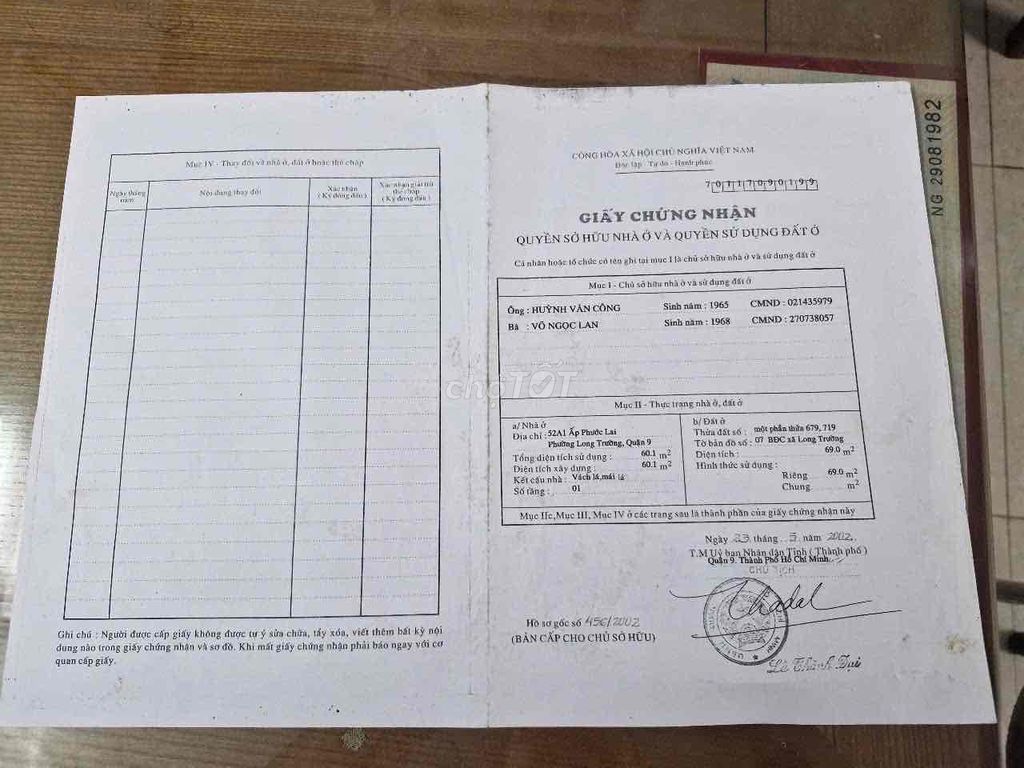 Mục IV - Thay đổi về nhà ở, đất ở hoặc thế chấp
Ngày tháng năm
Nội dung thay đổi
Xác nhận
( Ký đóng dấu )
Xác nhận giải trừ thế chấp
( Ký đóng dấu )
Ghi chú : Người được cấp giấy không được tự ý sửa chữa, tẩy xóa, viết thêm bất kỳ nội
dung nào trong giấy chứng nhận và sơ đồ. Khi mất giấy chứng nhận phải báo ngay với cơ
quan cấp giấy.
CỘNG HÒA XÃ HỘI CHỦ NGHĨA VIỆT NAM
Độc lập - Tự do - Hạnh phúc
GIẤY CHỨNG NHẬN
QUYỀN SỞ HỮU NHÀ Ở VÀ QUYỀN SỬ DỤNG ĐẤT Ở
Cá nhân hoặc tổ chức có tên ghi tại mục I là chủ sở hữu nhà ở và sử dụng đất ở
Mục I - Chủ sở hữu nhà ở và sử dụng đất ở
Ông : HUỲNH VĂN CÔNG Sinh năm : 1965 CMND : 021435979
Bà : VÕ NGỌC LAN Sinh năm : 1968 CMND : 270738057
chợTỐT
Mục II - Thực trạng nhà ở, đất ở
a/ Nhà ở
Địa chỉ : 52A1 Ấp Phước Lai
Phường Long Trường, Quận 9
Tổng diện tích sử dụng : 60.1 m²
Diện tích xây dựng : 60.1 m²
Kết cấu nhà : Vách lá, mái lá
Số tầng : 01
b/ Đất ở
Thửa đất số : một phần thửa 679, 719
Tờ bản đồ số : 07 BĐC xã Long Trường
Diện tích : 69.0 m²
Hình thức sử dụng :
Riêng 69.0 m²
Chung m²
Mục IIc, Mục III, Mục IV ở các trang sau là thành phần của giấy chứng nhận này
Ngày 23 tháng 5 năm 2002
T.M Uỷ ban Nhân dân Tỉnh ( Thành phố )
Quận 9. Thành Phố Hồ Chí Minh
CHỦ TỊCH
Hồ sơ gốc số 456/2002
(BẢN CẤP CHO CHỦ SỞ HỮU)
Lê Thành Đại
NG 29081982